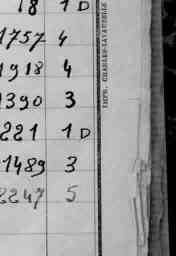 18 1 D
1757 4
1918 4
1390 3
221 1 D
1489 3
2247 5
IMPR. CHARLES-LAVAUZELLE